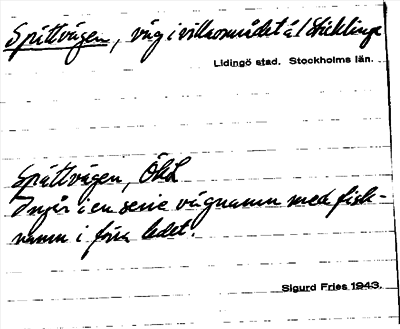 Spättvägen, väg i villaområdet å / Sticklinge
Lidingö stad. Stockholms län.
Spättvägen, ÖKL
Ingår i en serie vägnamn med fisk-
namn i förra ledet.
Sigurd Fries 1943.